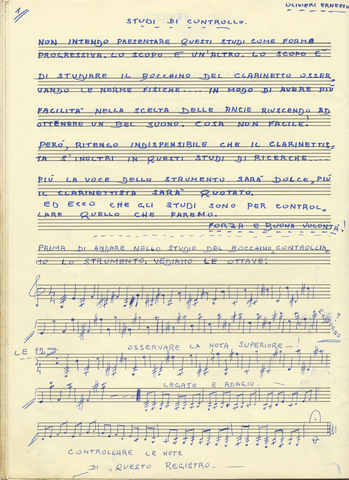 1)
OLIVIERI ERNESTO
STUDI DI CONTROLLO.
NON INTENDO PRESENTARE QUESTI STUDI COME FORMA
PROGRESSIVA. LO SCOPO È UN'ALTRO. LO SCOPO È
DI STUDIARE IL BOCCHINO DEL CLARINETTO OSSER_
VANDO LE NORME FISICHE IN MODO DI AVERE PIÙ
FACILITÀ NELLA SCELTA DELLE ANCIE RIUSCENDO AD
OTTENERE UN BEL SUONO. COSA NON FACILE!
PERÒ, RITENGO INDISPENSIBILE CHE IL CLARINETTIS_
TA S'INOLTRI IN QUESTI STUDI DI RICERCHE
PIÙ LA VOCE DELLO STRUMENTO SARÀ DOLCE, PIÙ
IL CLARINETTISTA SARÀ QUOTATO.
ED ECCO CHE GLI STUDI SONO PER CONTROL_
LARE QUELLO CHE FAREMO.
FORZA E BUONA VOLONTÀ!
PRIMA DI ANDARE NELLO STUDIO DEL BOCCHINO, CONTROLLIA_
MO LO STRUMENTO. VEDIAMO LE OTTAVE!
LE 12me
OSSERVARE LA NOTA SUPERIORE_!
LEGATO E ADAGIO.
CONTROLLARE LE NOTE
DI QUESTO REGISTRO